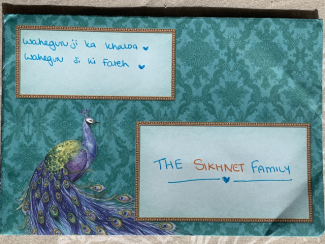 Waheguru ji ka Khalsa ♥
Waheguru Ji ki Fateh ♥
THE SIKHNET FAMILY